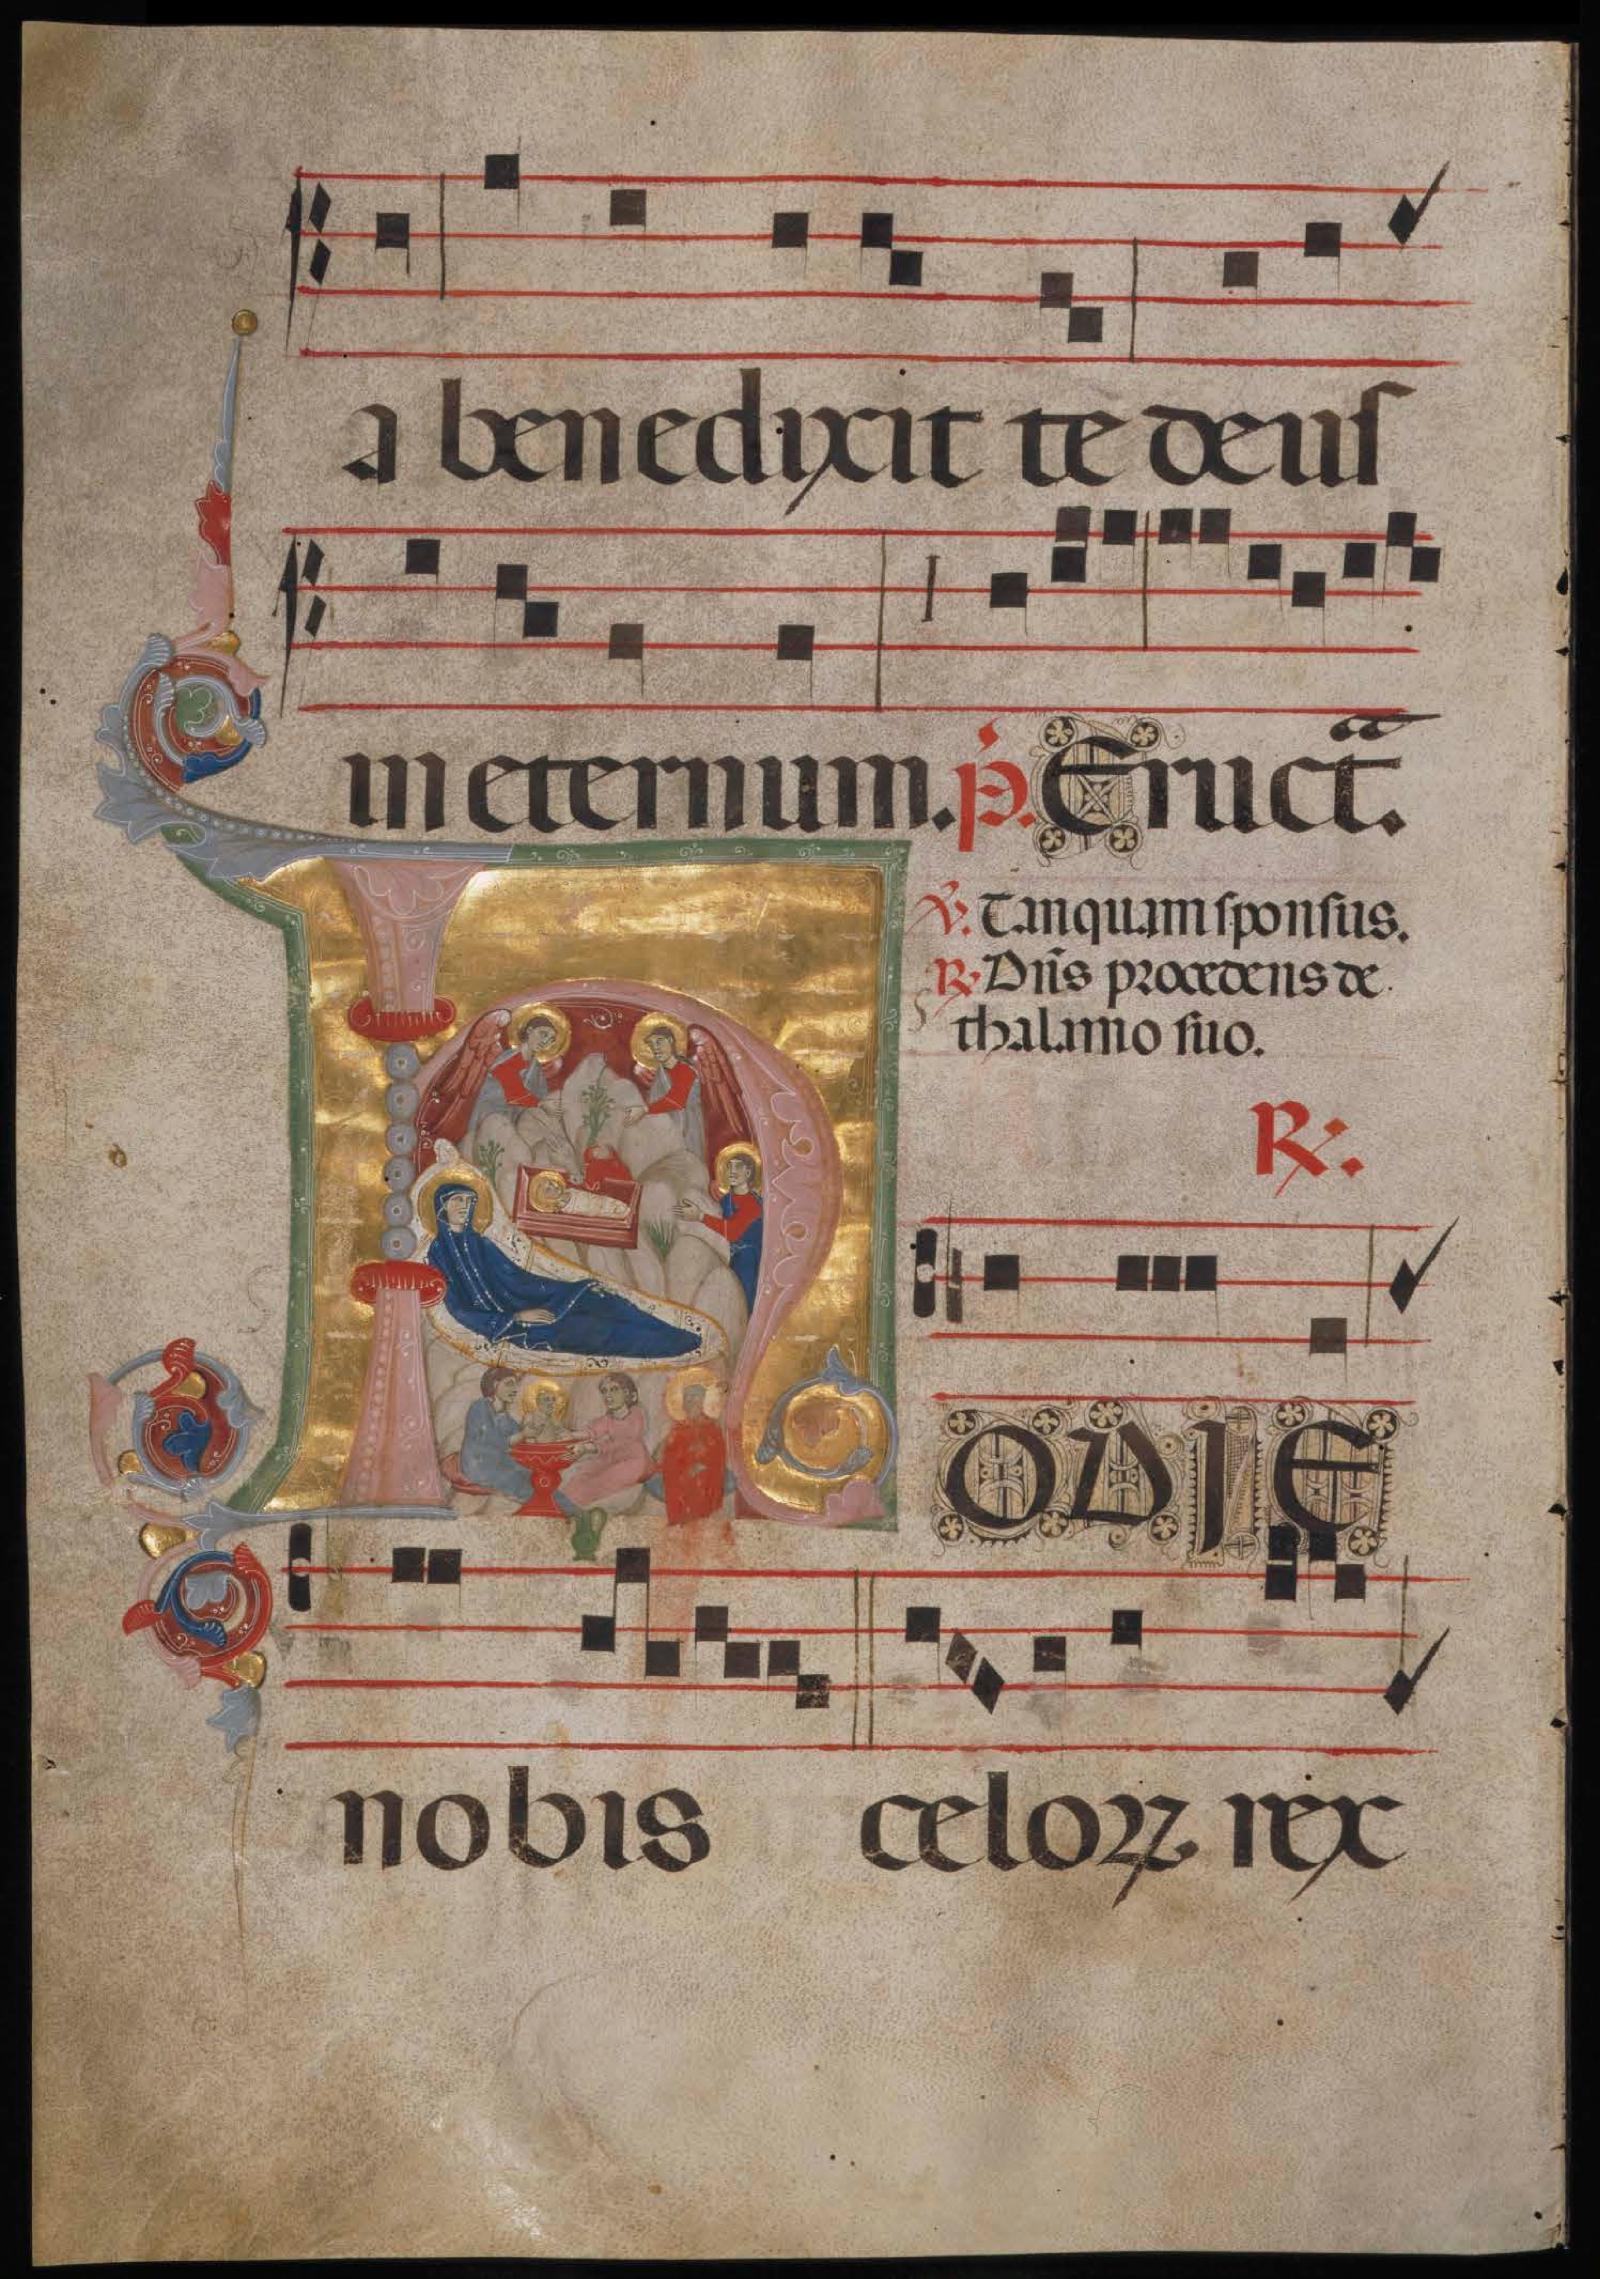 a benedixit te deus
in eternum. p̄. Eruct̄.
℣. Tanquam sponsus.
℟. Dn̄s procedens de
thalamo suo.
℟.
HODIE
nobis celoꝝ rex